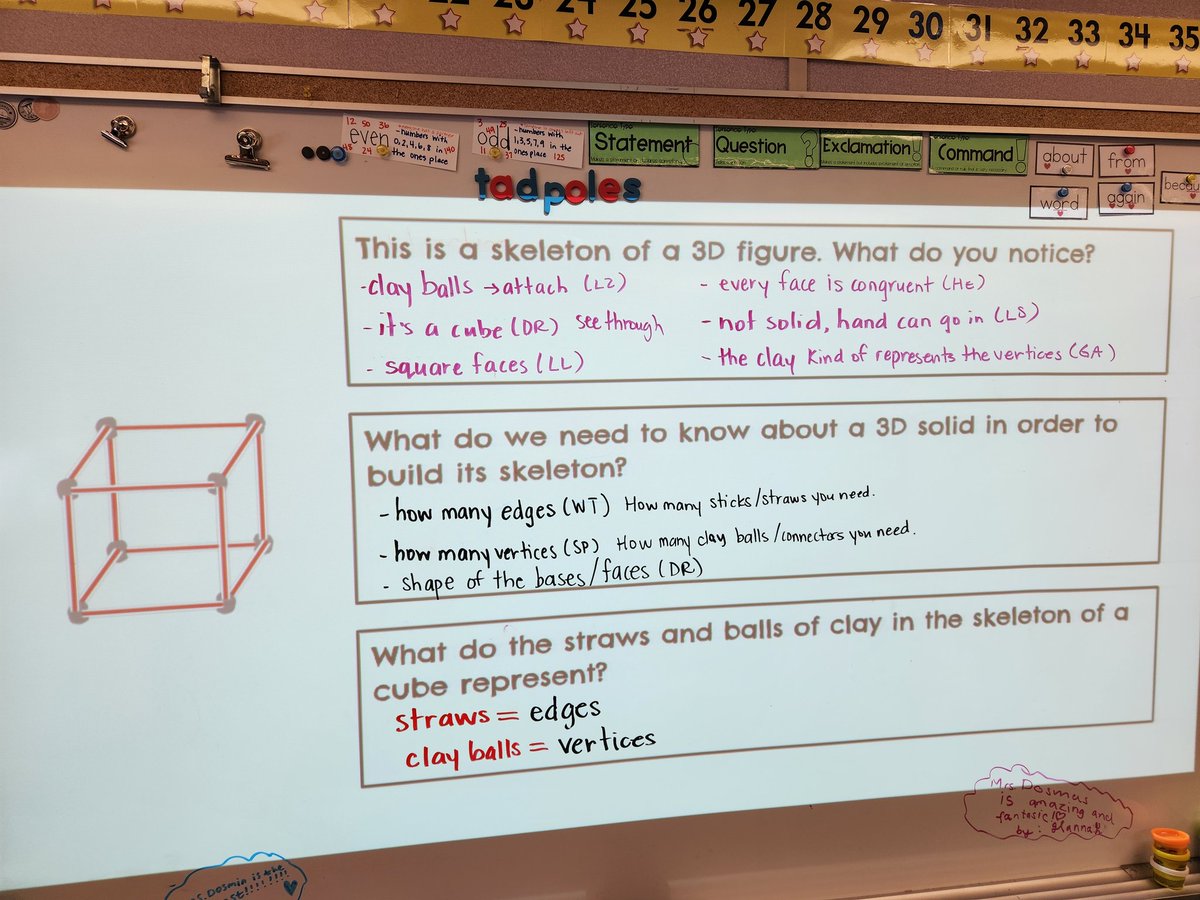 22 23 24 25 26 27 28 29 30 31 32 33 34 35
12 50 36
even - numbers with
0,2,4,6,8 in 190
48 24 the ones place
3 49 25
odd - numbers with
1,3,5,7,9 in the
11 37 ones place 125
Statement
Question ?
Exclamation!
Command!
about
from
word
again
tadpoles
This is a skeleton of a 3D figure. What do you notice?
-clay balls →attach (LZ)
- it's a cube (DR) see through
- square faces (LL)
- every face is congruent (HE)
- not solid, hand can go in (LS)
- the clay kind of represents the vertices (GA)
What do we need to know about a 3D solid in order to
build its skeleton?
- how many edges (WT) How many sticks/straws you need.
- how many vertices (SP) How many clay balls/connectors you need.
- shape of the bases/faces (DR)
What do the straws and balls of clay in the skeleton of a
cube represent?
straws = edges
clay balls = vertices
Mrs Dosmas
is amazing and
fantasic!
by: Hannah
Dosmin is the